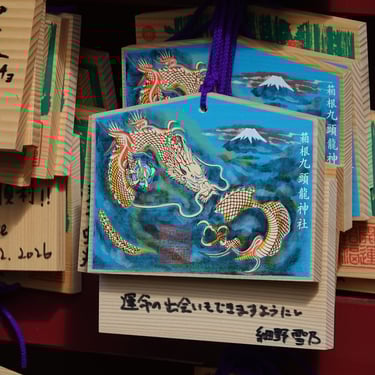 箱根九頭龍神社
箱根九頭龍神社
運命の出会いもできますように
細野雪乃
!!
2. 2026